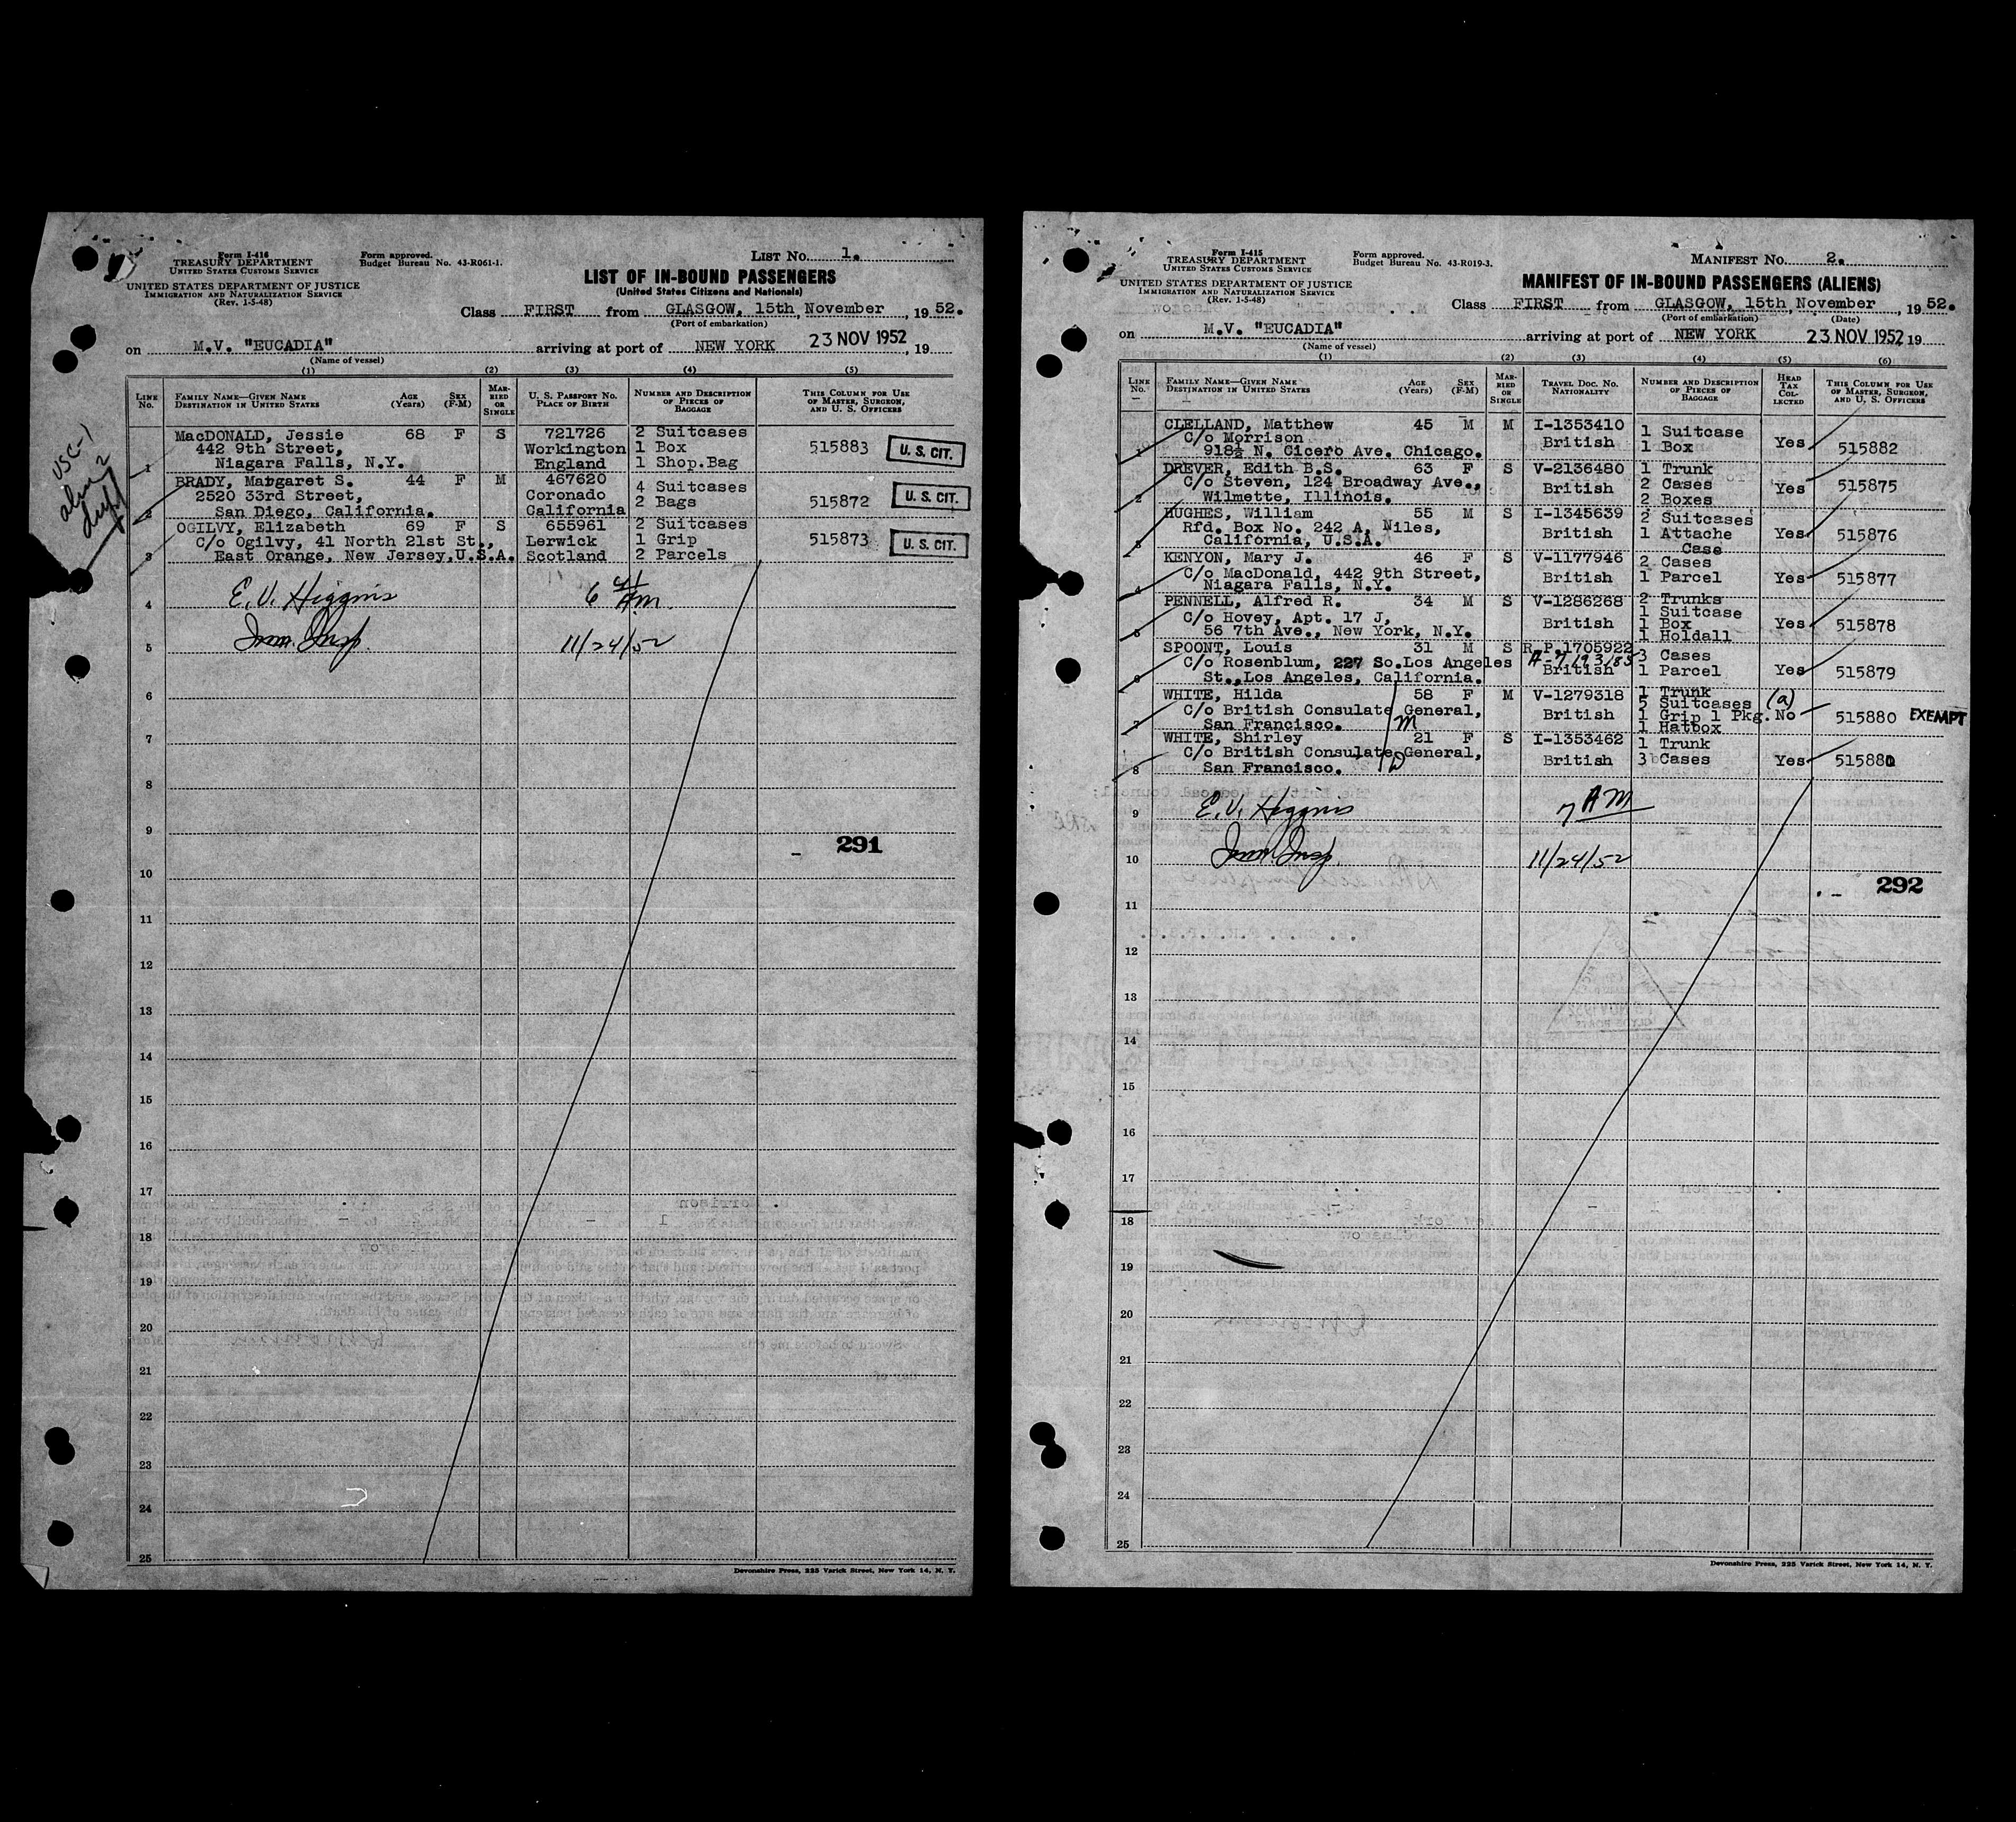 Form I-416
TREASURY DEPARTMENT
UNITED STATES CUSTOMS SERVICE
Form approved.
Budget Bureau No. 43-R061-1.
LIST NO. 1.
UNITED STATES DEPARTMENT OF JUSTICE
IMMIGRATION AND NATURALIZATION SERVICE
(Rev. 1-5-48)
LIST OF IN-BOUND PASSENGERS
(United States Citizens and Nationals)
Class FIRST from GLASGOW, 15th November, 19 52.
(Port of embarkation)
on M.V. "EUCADIA" arriving at port of NEW YORK 23 NOV 1952, 19
(Name of vessel)
(1) (2) (3) (4) (5)
LINE No. FAMILY NAME—GIVEN NAME DESTINATION IN UNITED STATES AGE (Years) SEX (F-M) MARRIED OR SINGLE U. S. PASSPORT NO. PLACE OF BIRTH NUMBER AND DESCRIPTION OF PIECES OF BAGGAGE THIS COLUMN FOR USE OF MASTER, SURGEON, AND U. S. OFFICERS
USC-1
MacDONALD, Jessie 68 F S 721726 2 Suitcases
442 9th Street, Workington 1 Box 515883 U. S. CIT.
1 Niagara Falls, N.Y. England 1 Shop.Bag
BRADY, Margaret S. 44 F M 467620 4 Suitcases
2520 33rd Street, Coronado 2 Bags 515872 U. S. CIT.
2 San Diego, California. California
OGILVY, Elizabeth 69 F S 655961 2 Suitcases
C/o Ogilvy, 41 North 21st St., Lerwick 1 Grip 515873 U. S. CIT.
3 East Orange, New Jersey,U.S.A. Scotland 2 Parcels
4 E. V. Higgins
5 Imm. Insp. 11/24/52
6
7
8
9
291
10
11
12
13
14
15
16
17
18
19
20
21
22
23
24
25
Devonshire Press, 225 Varick Street, New York 14, N. Y.
Form I-415
TREASURY DEPARTMENT
UNITED STATES CUSTOMS SERVICE
Form approved.
Budget Bureau No. 43-R019-3.
MANIFEST NO. 2.
UNITED STATES DEPARTMENT OF JUSTICE
IMMIGRATION AND NATURALIZATION SERVICE
(Rev. 1-5-48)
MANIFEST OF IN-BOUND PASSENGERS (ALIENS)
Class FIRST from GLASGOW, 15th November, 19 52.
(Port of embarkation) (Date)
on M.V. "EUCADIA" arriving at port of NEW YORK 23 NOV 1952 19
(Name of vessel)
(1) (2) (3) (4) (5) (6)
LINE No. FAMILY NAME—GIVEN NAME DESTINATION IN UNITED STATES AGE (Years) SEX (F-M) MARRIED OR SINGLE TRAVEL DOC. NO. NATIONALITY NUMBER AND DESCRIPTION OF PIECES OF BAGGAGE HEAD TAX COLLECTED THIS COLUMN FOR USE OF MASTER, SURGEON, AND U. S. OFFICERS
CLELLAND, Matthew 45 M M I-1353410 1 Suitcase
C/o Morrison British 1 Box Yes 515882
1 918½ N. Cicero Ave. Chicago.
DREVER, Edith B.S. 63 F S V-2136480 1 Trunk
C/o Steven, 124 Broadway Ave., British 2 Cases Yes 515875
2 Wilmette, Illinois. 2 Boxes
HUGHES, William 55 M S I-1345639 2 Suitcases
Rfd. Box No. 242 A, Niles, British 1 Attache Yes 515876
3 California, U.S.A. Case
KENYON, Mary J. 46 F S V-1177946 2 Cases
C/o MacDonald, 442 9th Street, British 1 Parcel Yes 515877
4 Niagara Falls, N.Y.
PENNELL, Alfred R. 34 M S V-1286268 2 Trunks
C/o Hovey, Apt. 17 J, British 1 Suitcase 1 Box Yes 515878
5 56 7th Ave., New York, N.Y. 1 Holdall
SPOONT, Louis 31 M S R.P.1705922 3 Cases
C/o Rosenblum, 227 So.Los Angeles A-7193183 British 1 Parcel Yes 515879
6 St.,Los Angeles, California.
WHITE, Hilda 58 F M V-1279318 1 Trunk 5 Suitcases (a)
C/o British Consulate General, British 1 Grip 1 Pkg. No 515880 EXEMPT
7 San Francisco. M 1 Hatbox
WHITE, Shirley 21 F S I-1353462 1 Trunk
C/o British Consulate General, British 3 Cases Yes 515881
8 San Francisco. D
9 E. V. Higgins 7 AM
10 Imm. Insp 11/24/52
292
11
12
13
14
15
16
17
18
19
20
21
22
23
24
25
Devonshire Press, 225 Varick Street, New York 14, N. Y.